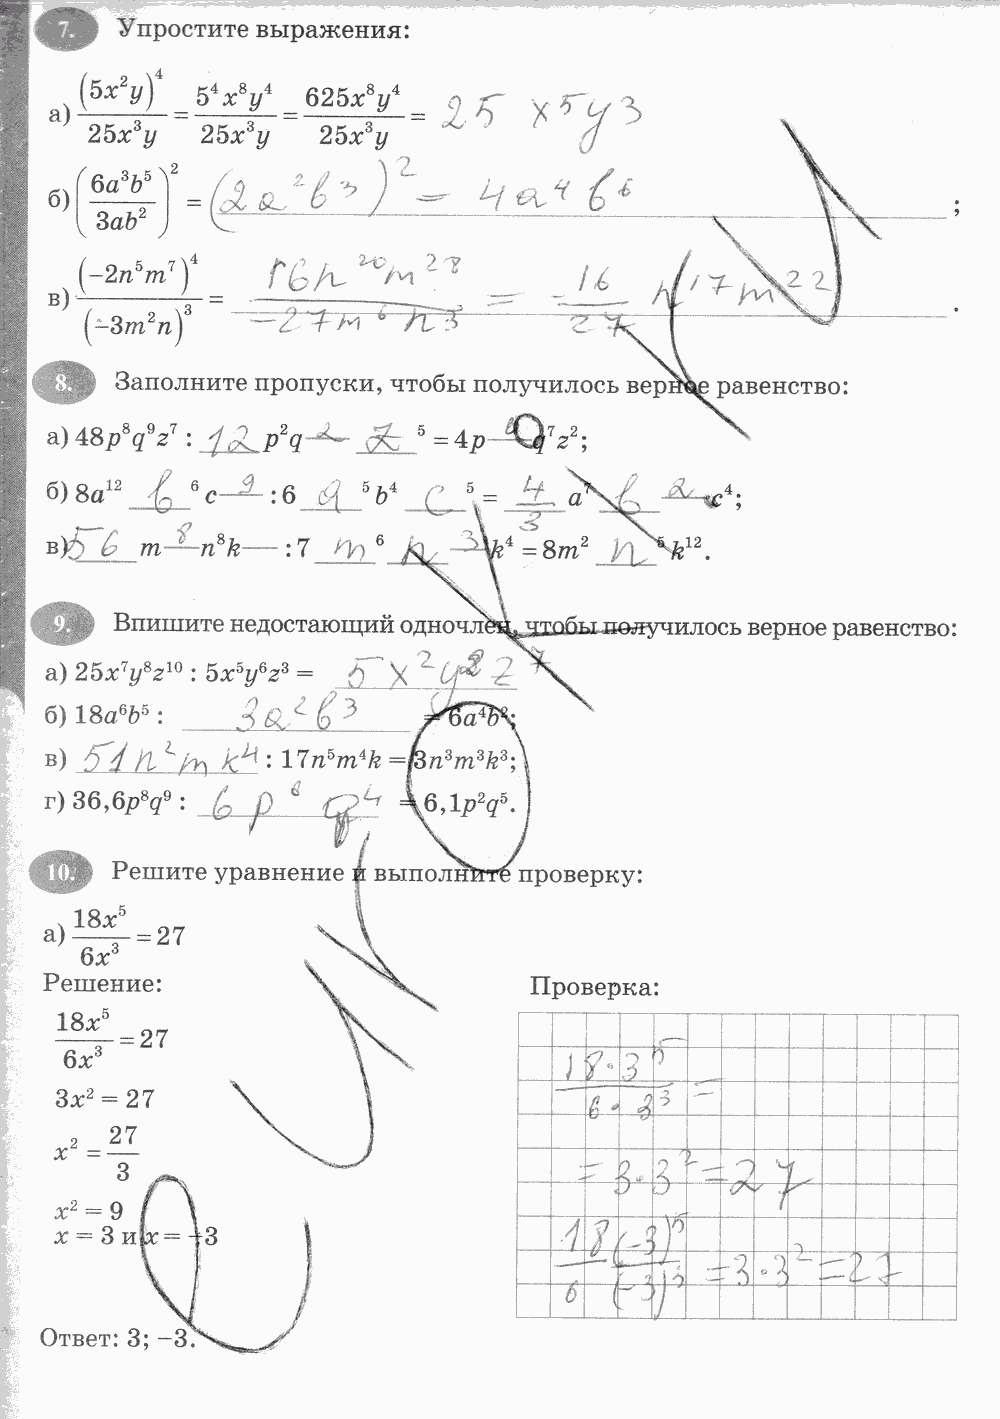 7. Упростите выражения:
а) (5x²y)⁴/25x³y = 5⁴x⁸y⁴/25x³y = 625x⁸y⁴/25x³y = 25 x⁵y³
б) (6a³b⁵/3ab²)² = (2a²b³)² = 4a⁴b⁶ ;
в) (−2n⁵m⁷)⁴/(−3m²n)³ = 16n²⁰m²⁸/−27m⁶n³ = −16/27 n¹⁷m²² .
8. Заполните пропуски, чтобы получилось верное равенство:
а) 48p⁸q⁹z⁷ : 12 p²q² z⁵ = 4p⁶q⁷z²;
б) 8a¹² b⁶c⁹ : 6 a⁵b⁴ c⁵ = 4/3 a⁷ b² c⁴;
в) 56 m⁸n⁸k— : 7 m⁶ n³ k⁴ = 8m² n⁵k¹².
9. Впишите недостающий одночлен, чтобы получилось верное равенство:
а) 25x⁷y⁸z¹⁰ : 5x⁵y⁶z³ = 5x²y²z⁷
б) 18a⁶b⁵ : 3a²b³ = 6a⁴b²;
в) 51n²mk⁴ : 17n⁵m⁴k = 3n³m³k³;
г) 36,6p⁸q⁹ : 6p⁶q⁴ = 6,1p²q⁵.
10. Решите уравнение и выполните проверку:
а) 18x⁵/6x³ = 27
Решение:
Проверка:
18x⁵/6x³ = 27
18·3⁵/6·3³ =
3x² = 27
x² = 27/3
= 3·3² = 27
x² = 9
x = 3 и x = −3
18(−3)⁵/6(−3)³ = 3·3² = 27
Ответ: 3; −3.